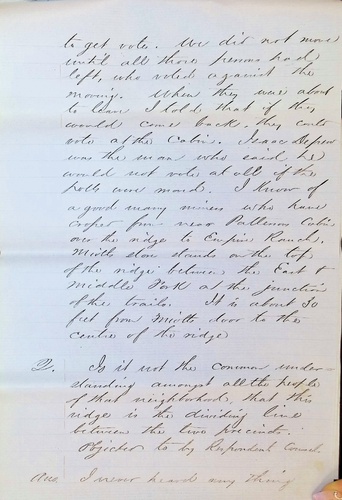 to get vote. We did not move
until all those persons had
left, who voted against the
moving. When they were about
to leave I told that if they
would come back, they could
vote at the Cabin. Isaac
was the man who said he
would not vote at all if the
polls were moved. I know of
a good many miners who have
from near Cabin
over the ridge to Empire Ranch.
store stands on the top
of the ridge between the East &
Middle Fork at the junction
of the trails. It is about 30
feet from door to the
centre of the ridge
Q. Is it not the common under-
standing amongst all the people
of that neighborhood, that this
ridge is the dividing line
between the two precincts.
Objected to by Respondent Counsel.
Ans. I never heard any thing